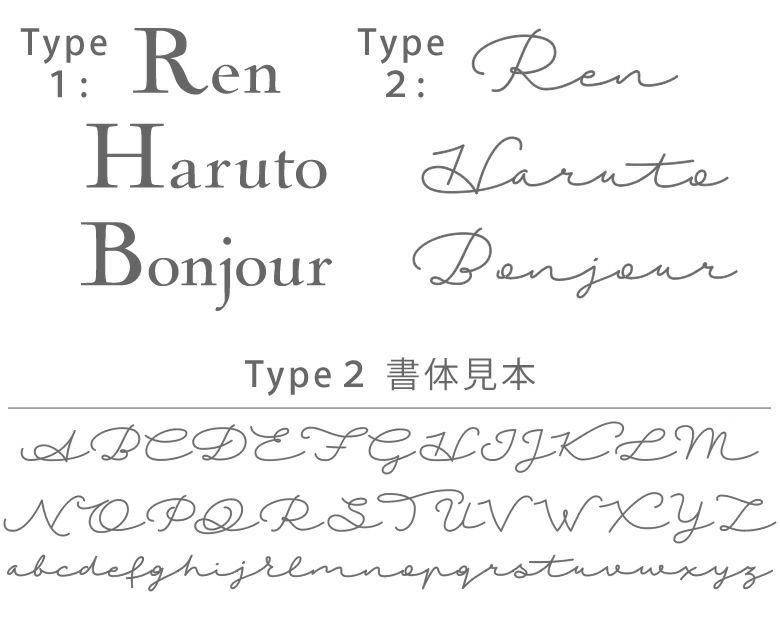 Type 1: Ren
Haruto
Bonjour
Type 2: Ren
Haruto
Bonjour
Type 2 書体見本
ABCDEFGHIJKLM
NOPQRSTUVWXYZ
abcdefghijrlmnopqrstuvwxyz